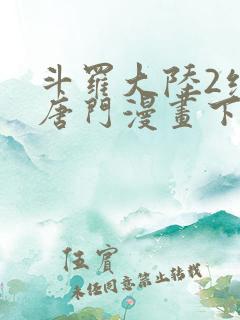 斗羅大陸2
唐門漫畫下
伍賓
未任同意禁止轉載